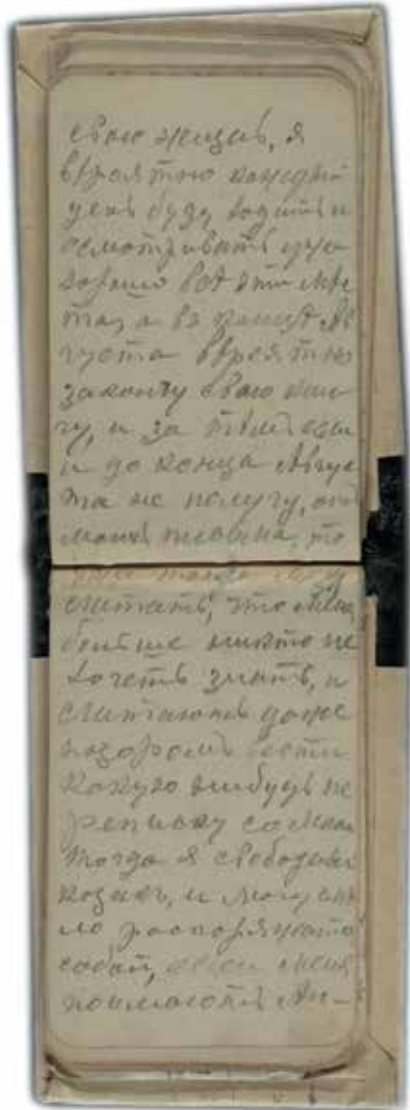 свою жизнь, я
вѣроятно каждый
день буду ходить и
осматривать уже
хорошо всѣ эти мѣс
та, а въ концѣ Ав
густа вѣроятно
закончу свою кни
гу, и за тѣмъ если
и до конца Авгус
та не получу, отъ
моихъ письма, то
уже тогда буду
считать, что меня
больше никто не
хочетъ знать, и
считаютъ даже
позоромъ вести
какую нибудь пе
реписку со мной
тогда я свободный
козакъ, и могу смѣ
ло, распоряжаться
собой, если меня
поймаютъ